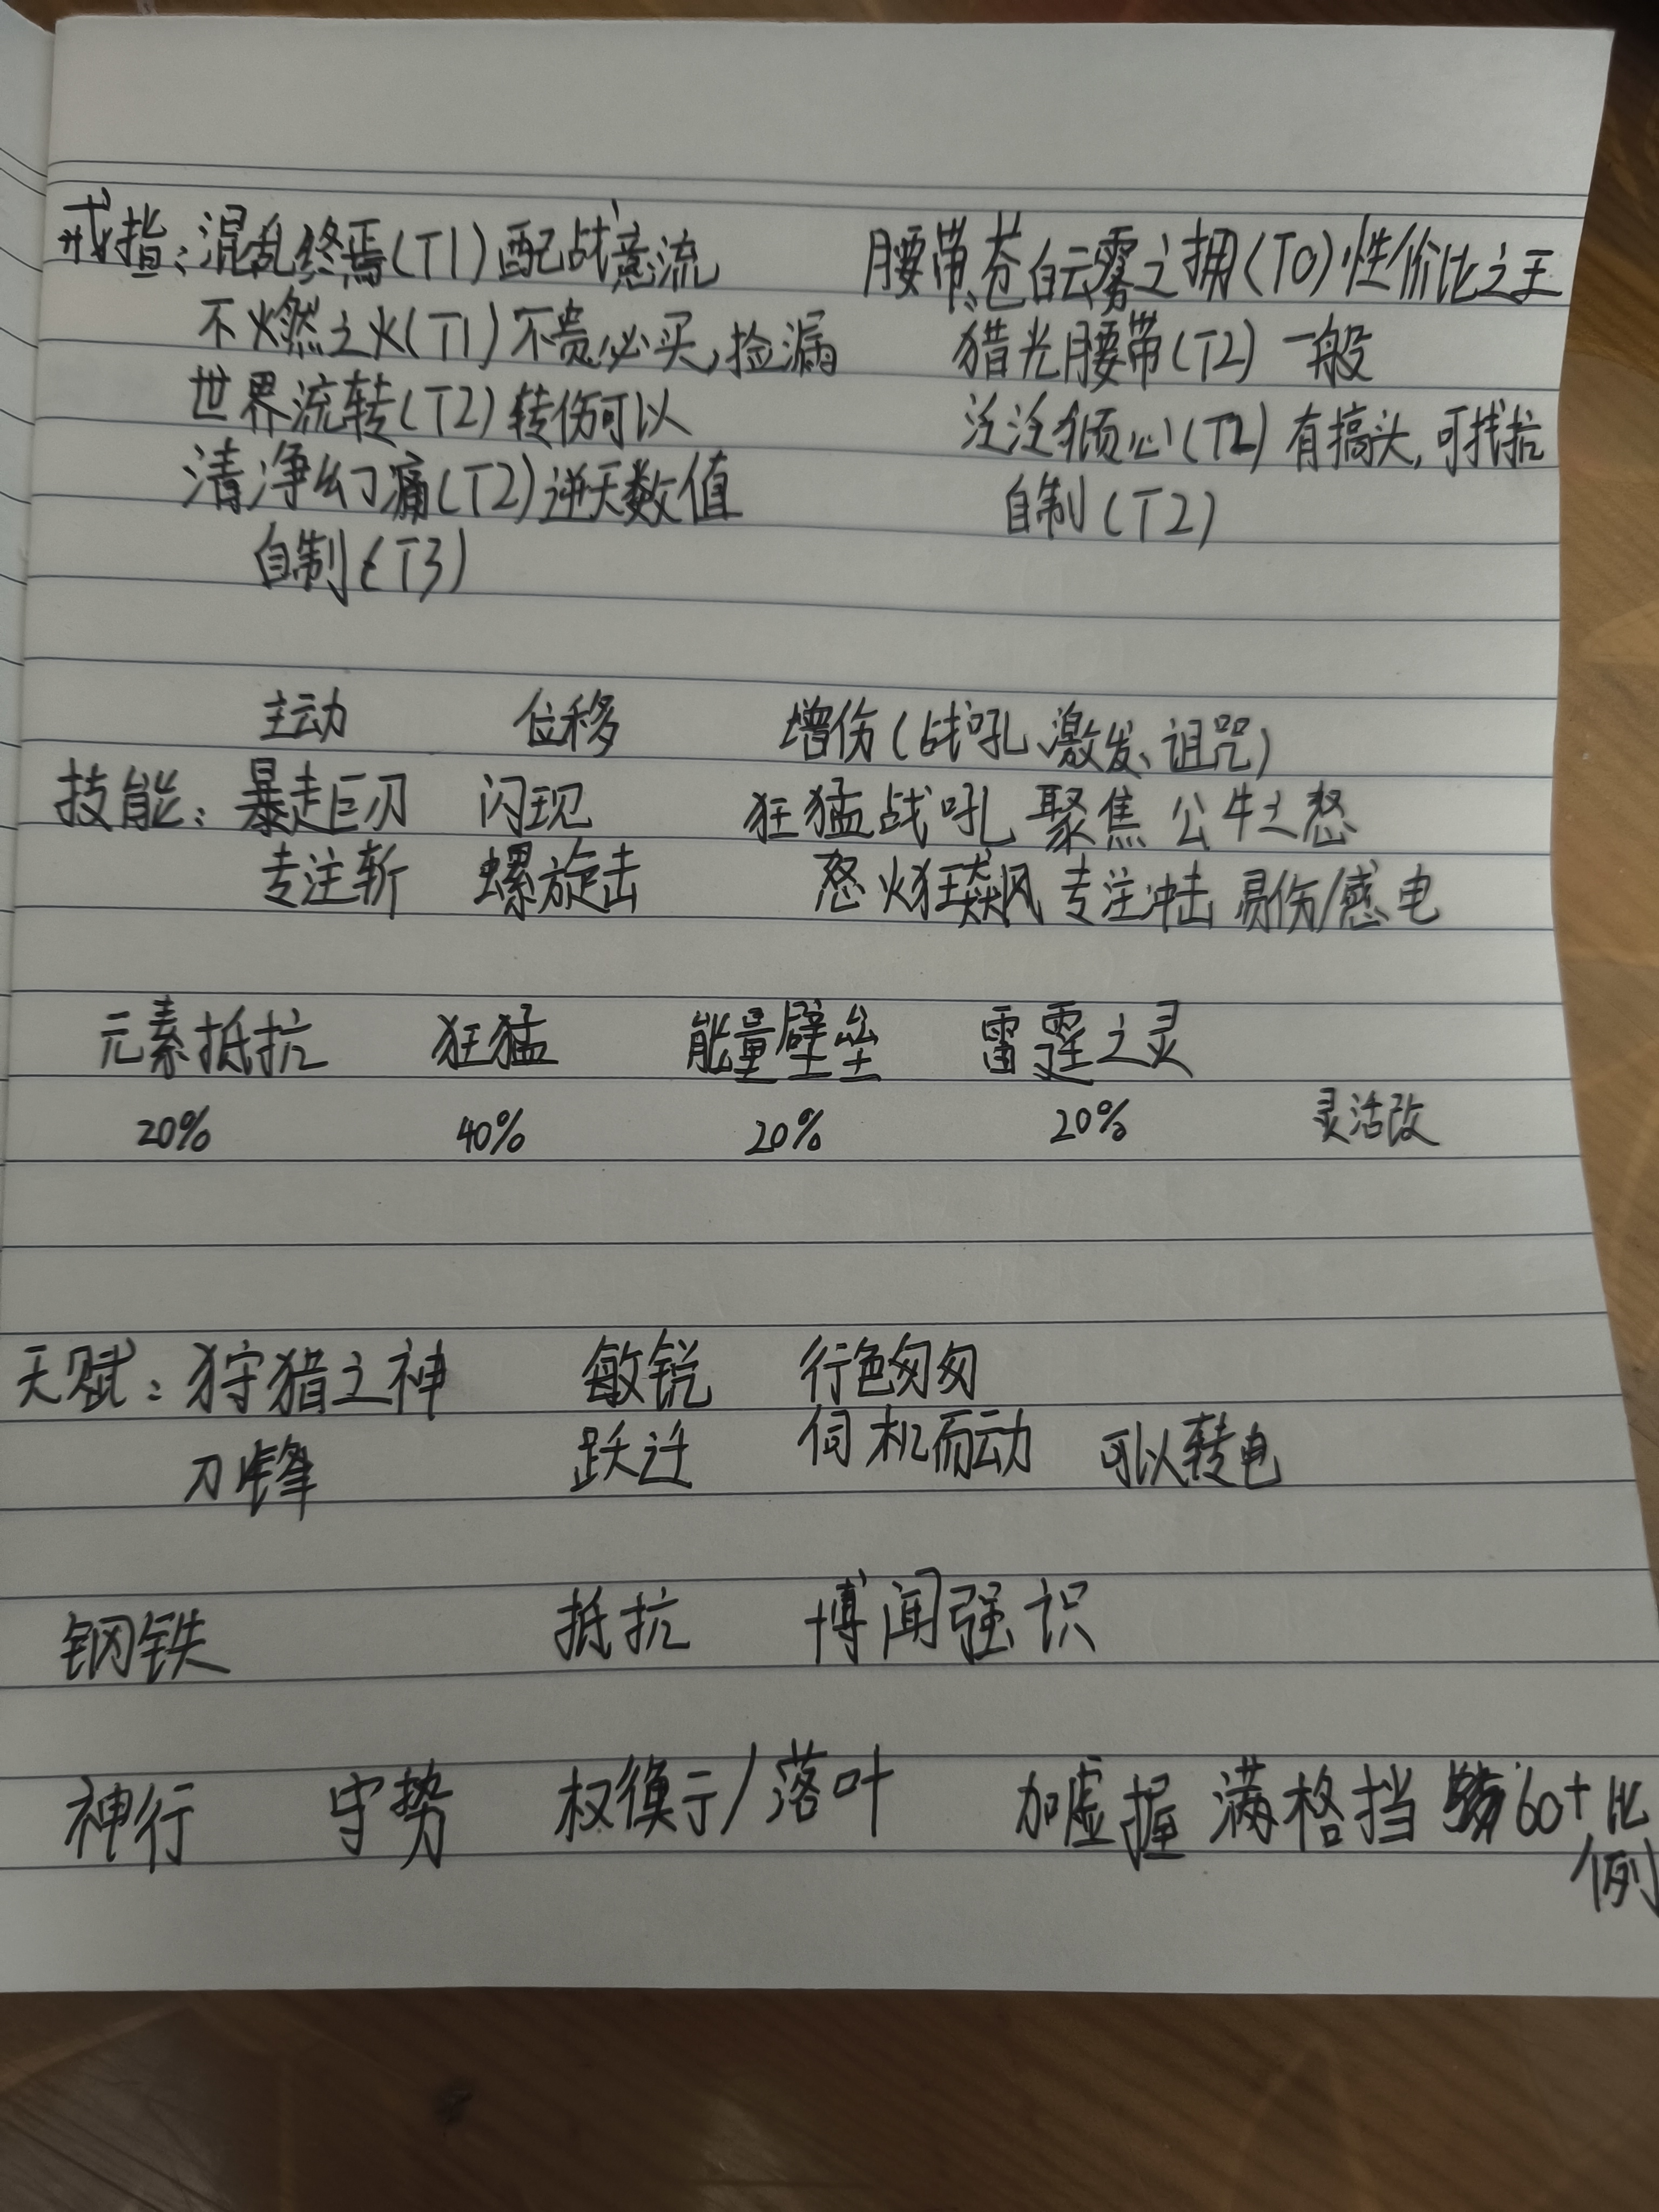 戒指：混乱终焉(T1)配战意流
不燃之火(T1)不贵必买,捡漏
世界流转(T2)转伤可以
清净幻痛(T2)逆天数值
自制(T3)
腰带：苍白云雾之拥(T0)性价比之王
猎光腰带(T2)一般
泛泛倾心(T2)有搞头,可找抗
自制(T2)
主动 位移 增伤(战吼、激发、诅咒)
技能：暴走巨刃 闪现 狂猛战吼 聚焦 公牛之怒
专注斩 螺旋击 怒火狂飙风 专注冲击 易伤/感电
元素抵抗 狂猛 能量壁垒 雷霆之灵
20% 40% 20% 20% 灵活改
天赋：狩猎之神 敏锐 行色匆匆
刀锋 跃迁 伺机而动 可以转电
钢铁 抵抗 博闻强识
神行 守势 权衡/落叶 加虚握 满格挡 60+比
例